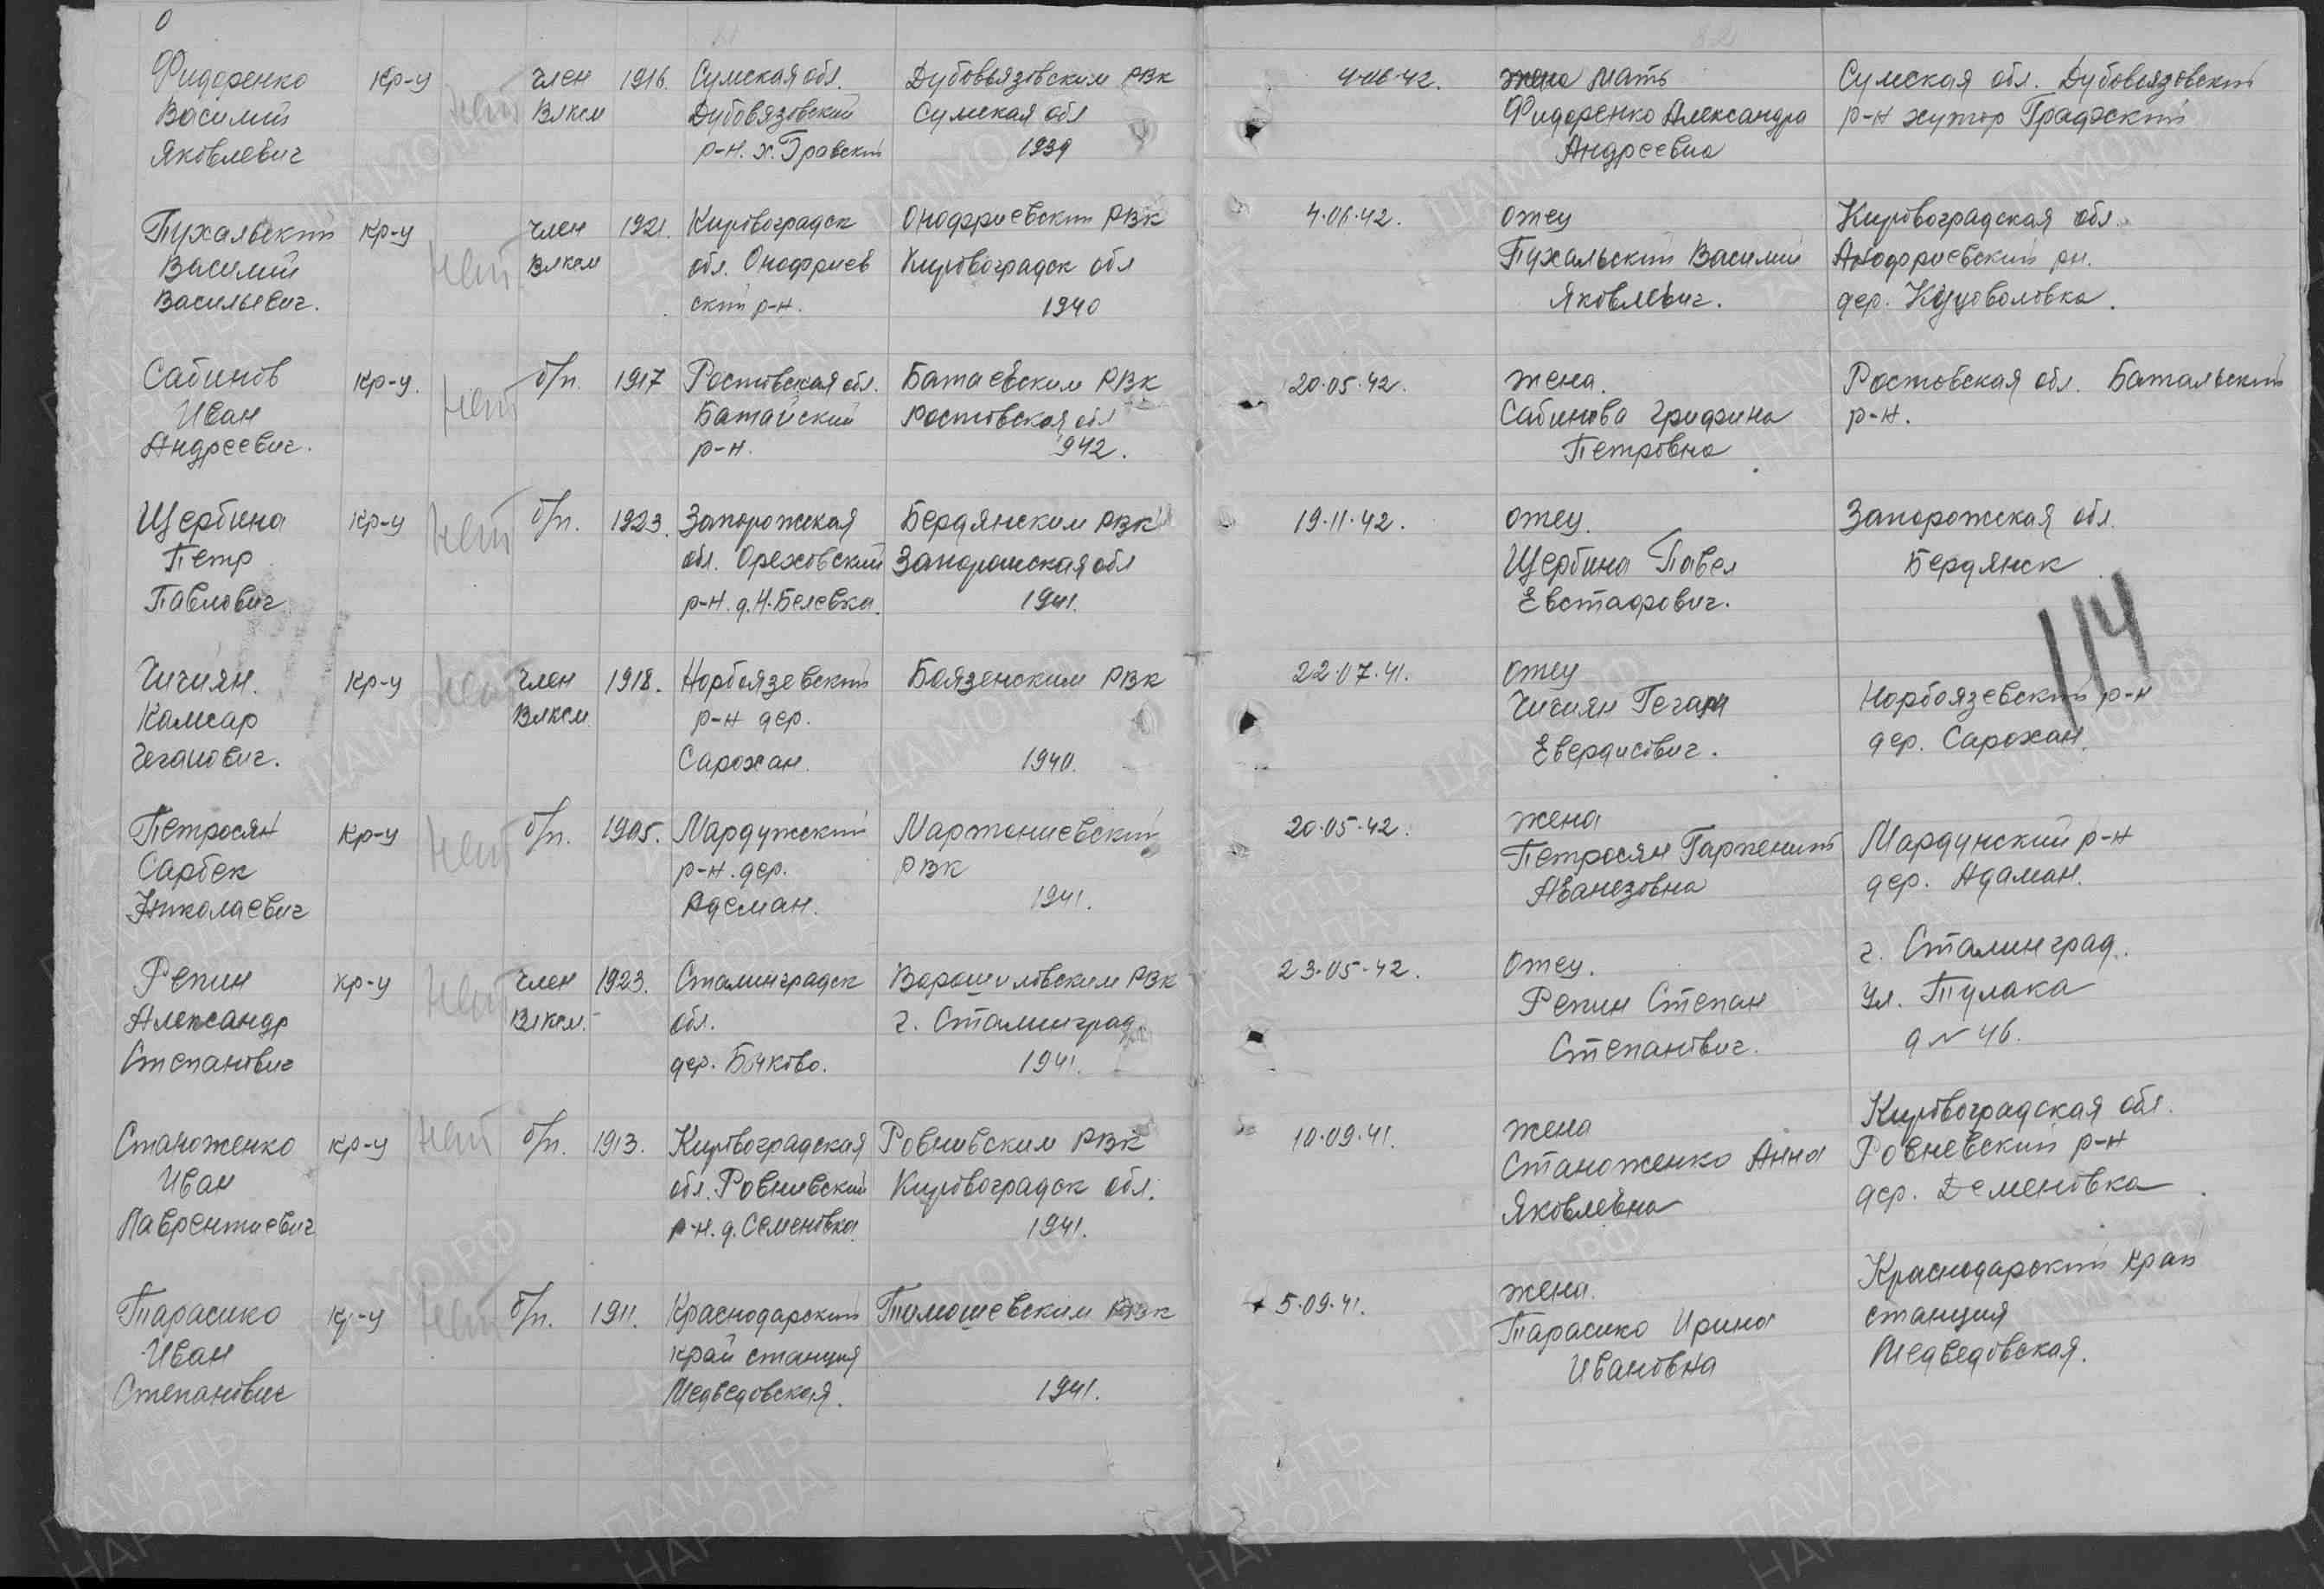 Фидоренко Кр-у нет член 1916. Сумская обл. Дубовьязовским РВк 4.06.42. мать Сумская обл. Дубовьязовский
Василий Влксм Дубовязовский Сумская обл Фидоренко Александра р-н хутор Гравский
Яковлевич р-н. х. Гравский 1939 Андреевна
Пухальский Кр-у нет член 1921. Кировоградск Онофриевский РВк 4.06.42. отец Кировоградская обл.
Василий Влксм обл. Онофриев Кировоградск обл Пухальский Василий Анофриевский рн.
Васильевич. ский р-н. 1940 Яковлевич. дер. Куцоволовка.
Сабинов Кр-у. нет б/п. 1917 Ростовская обл. Батаевским РВк 20.05.42. жена. Ростовская обл. Батальский
Иван Батайский Ростовская обл Сабинова Грифина р-н.
Андреевич. р-н. 942. Петровна
Щербина Кр-у нет б/п. 1923. Запорожская Бердянским РВк 19.11.42. отец. Запорожская обл.
Петр обл. Ореховский Запорожская обл Щербина Павел Бердянск
Павлович р-н. д. Н. Белевка. 1941. Евстафович.
114
Чичиян. Кр-у нет член 1918. Норбоязевский Боязенским РВк 22.07.41. отец Норбоязевский р-н
Камсар Влксм р-н дер. Чичиян дер. Сарохан.
Чегапович. Сарохан. 1940. Евердисович.
Петросян Кр-у нет б/п. 1905. Мардунский Мартониевский 20.05.42. жена Мардунский р-н
Сарбек р-н. дер. РВК Петросян дер. Адаман.
Николаевич Адеман. 1941. Аванезовна
Репин кр-у нет член 1923. Сталинградск Ворошиловским РВк 23.05.42. отец. г. Сталинград.
Александр Влксм. обл. г. Сталинград. Репин Степан ул. Тулака
Степанович дер. Бычково. 1941. Степанович. д № 46.
Станоженко кр-у нет б/п. 1913. Кировоградская Ровнивским РВк 10.09.41. жена Кировоградская обл.
Иван обл. Ровнивский Кировоградск обл. Станоженко Анна Ровневский р-н
Лаврентиевич р-н. д. Семеновка. 1941. Яковлевна дер. Деменовка
Тарасико кр-у нет б/п. 1911. Краснодарский Тимошевским РВк 5.09.41. жена. Краснодарский край
Иван край станция Тарасико Ирина станция
Степанович Медведовская. 1941. Ивановна Медведовская.